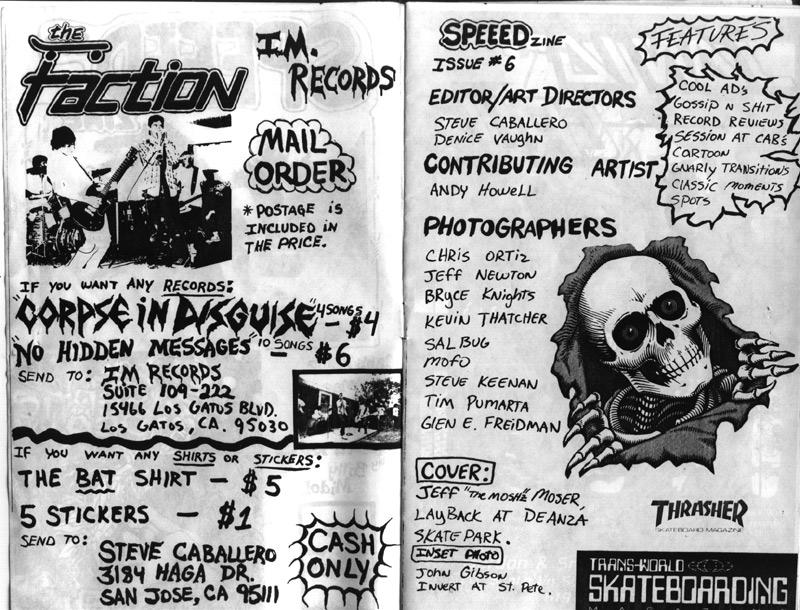 the
Faction
I.M.
RECORDS
MAIL
ORDER
* POSTAGE iS
INCLUDED iN
THE PRICE.
IF YOU WANT ANY RECORDS:
"CORPSE iN DISGUISE" 4 SONGS - $4
"NO HIDDEN MESSAGES" 10 SONGS - $6
SEND TO: IM RECORDS
SUITE 109-222
15466 LOS GATOS BLVD.
LOS GATOS, CA. 95030
IF YOU WANT ANY SHIRTS OR STICKERS:
THE BAT SHIRT - $5
5 STICKERS - $1
SEND TO:
STEVE CABALLERO
3184 HAGA DR.
SAN JOSE, CA 95111
CASH
ONLY
SPEEED ZINE
ISSUE #6
EDITOR/ART DIRECTORS
STEVE CABALLERO
DENICE VAUGHN
CONTRIBUTING ARTIST
ANDY HOWELL
PHOTOGRAPHERS
CHRIS ORTIZ
JEFF NEWTON
BRYCE KNIGHTS
KEVIN THATCHER
SAL BUG
MOFO
STEVE KEENAN
TIM PUMARTA
GLEN E. FREIDMAN
FEATURES
COOL ADS
GOSSIP N SHIT
RECORD REVIEWS
SESSION AT CAB'S
CARTOON
GNARLY TRANSITIONS
CLASSIC MOMENTS
SPOTS
COVER:
JEFF "THE MOSHE" MOSER,
LAYBACK AT DE ANZA
SKATEPARK.
INSET PHOTO
JOHN GIBSON
INVERT AT ST. PETE.
THRASHER
SKATEBOARD MAGAZINE
TRANS-WORLD
SKATEBOARDING